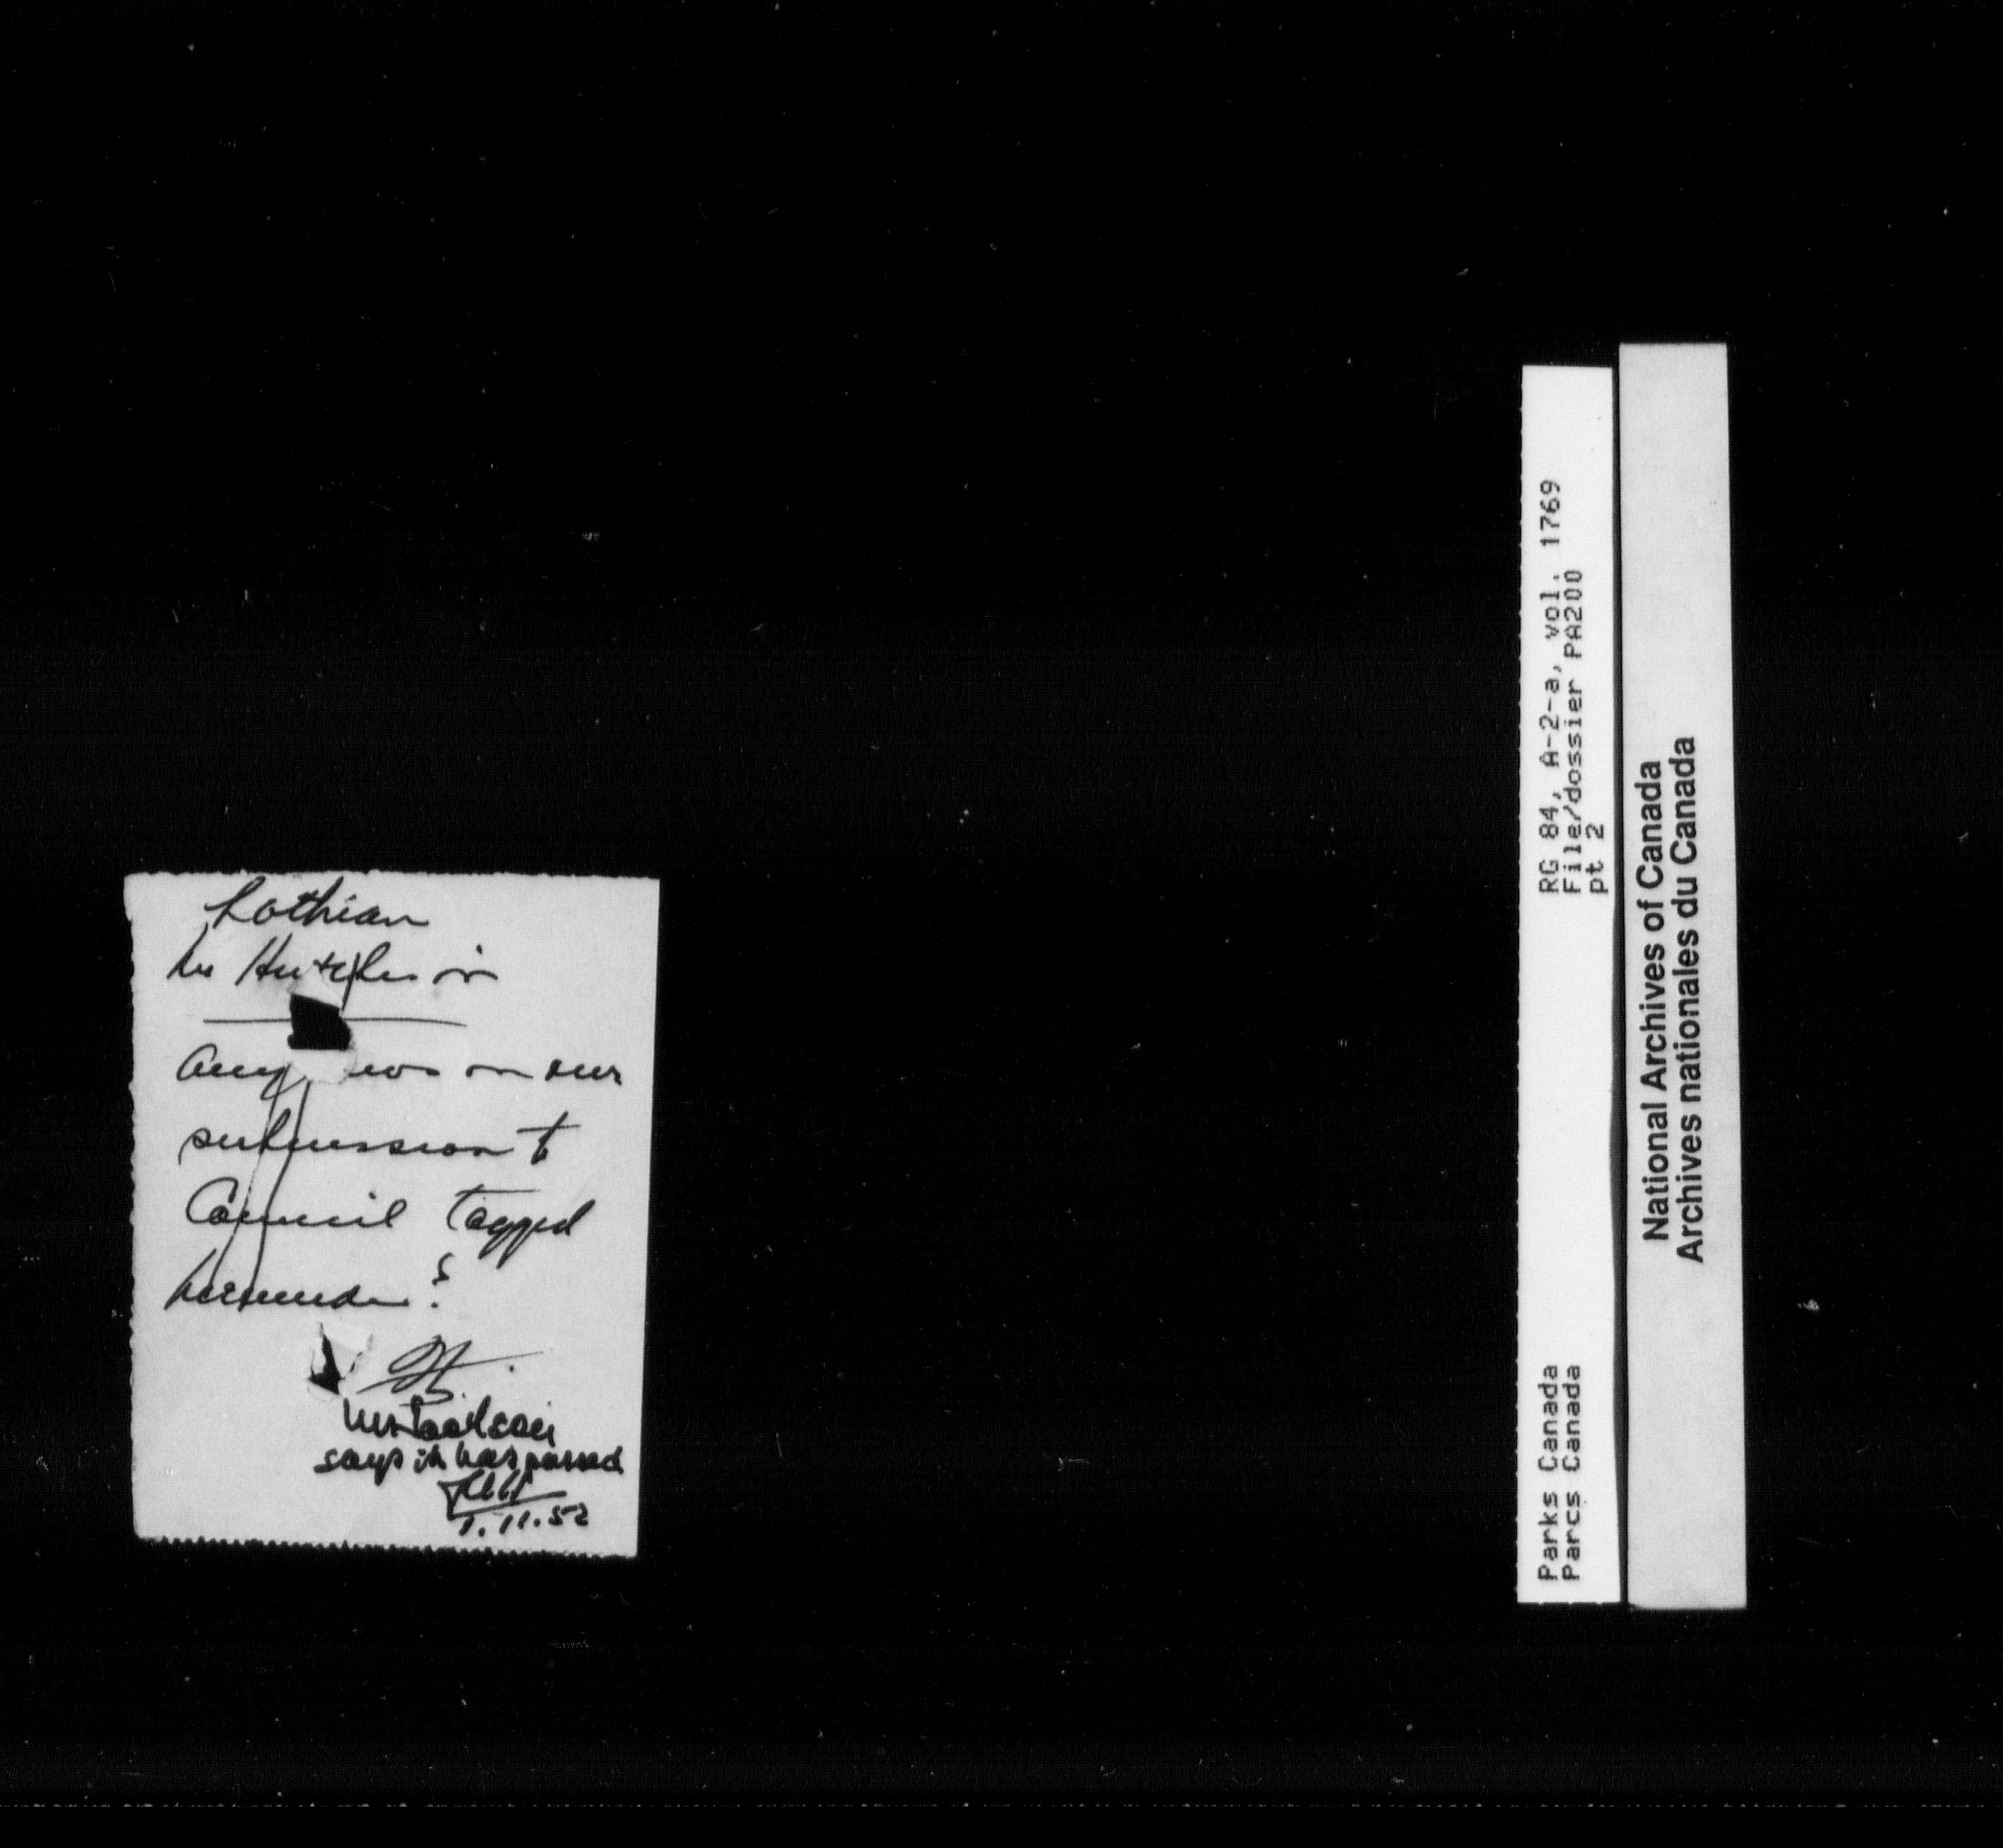 Lothian
Mr Hutchison
any news on our
submission to
Council tagged
hereunder?
Mr
says it has passed
1.11.52
RG 84, A-2-a, vol. 1769
File/dossier PA200
pt 2
Parks Canada
Parcs Canada
National Archives of Canada
Archives nationales du Canada